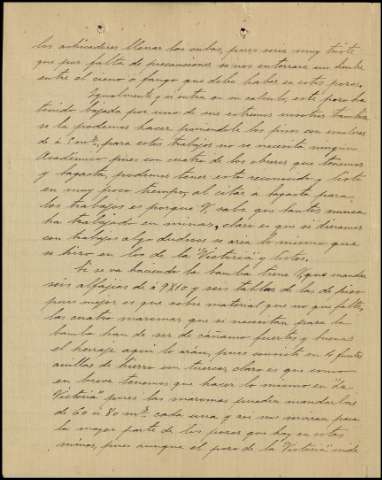 los antecederes llenar las cubas, pues seria muy triste
que por falta de precauciones se nos enterrara un hombre
entre el cieno o fango que debe haber en este pozo.
Igualmente y si entra en su calculo, este pozo ha
tenido bajada por uno de sus extremos nosotros tambien
se la podemos hacer poniendole los pisos con escaleras
de á 5 m/, para estos trabajos no se necesita ningun
Academico pues con cuatro de los obreros que tenemos
y Lagarta, podemos tener esto reconocido y listo
en muy poco tiempo, al citar a Lagarta para
los trabajos es porque V. sabe que tantos nunca
ha trabajado en minas, claro es que si dieramos
con trabajos algo dudosos se aria lo mismo que
se hizo en los de la "Victoria" y listos.
Si se va haciendo la bomba tiene V. que mandar
seis alfajias de á 9x10 y seis tablas de las de piso
pues mejor es que sobre material que no que falte,
las cuatro maromas que se necesitan para la
bomba han de ser de cáñamo fuertes y buenas
el heraje aqui lo aran, pues consiste en 10 fuertes
anillas de hierro sin tuercas claro es que como
en breve tenemos que hacer lo mismo en "La
Victoria" pues las maromas pueden mandarlas
de 60 ú 80 m/ cada una y asi nos sirvan para
la mayor parte de los pozos que hay en estas
minas, pues aunque el pozo de la "Victoria" mide